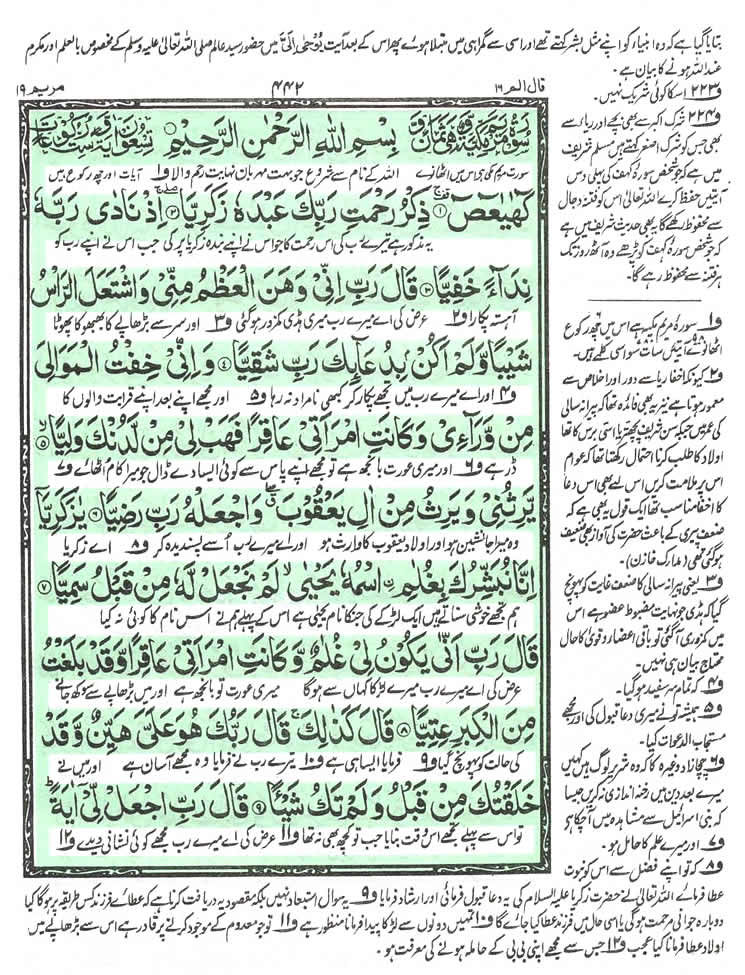 بتایا گیا ہے کہ وہ انبیاء کو اپنے مثل بشر کہتے تھے اور اسی سے گمراہی میں مبتلا ہوئے پھر اس کے بعد آیت یُوْحٰۤى اِلَیَّ میں حضور سید عالم صلی اللہ تعالیٰ علیہ وسلم کے مخصوص بالعلم اور مکرم
عنداللہ ہونے کا بیان ہے۔
مریم ۱۹
۴۴۲
قال الم ۱۶
بِسْمِ اللّٰهِ الرَّحْمٰنِ الرَّحِیْمِ
اللہ کے نام سے شروع جو بہت مہربان نہایت رحم والا ف۱
كٓهٰیٰعٓصٓ ۚ۱ ذِكْرُ رَحْمَتِ رَبِّكَ عَبْدَهٗ زَكَرِیَّا ۚۖ۲ اِذْ نَادٰى رَبَّهٗ
یہ مذکور ہے تیرے رب کی اس رحمت کا جو اس نے اپنے بندہ زکریا پر کی جب اس نے اپنے رب کو
نِدَآءً خَفِیًّا ۳ قَالَ رَبِّ اِنِّیْ وَهَنَ الْعَظْمُ مِنِّیْ وَاشْتَعَلَ الرَّاْسُ
آہستہ پکارا ف۲ عرض کی اے میرے رب میری ہڈی کمزور ہوگئی ف۳ اور سر سے بڑھاپے کا بھبھوکا پھوٹا
شَیْبًا وَّلَمْ اَكُنْۢ بِدُعَآىِٕكَ رَبِّ شَقِیًّا ۴ وَاِنِّیْ خِفْتُ الْمَوَالِیَ
ف۴ اور اے میرے رب میں تجھے پکار کر کبھی نامراد نہ رہا ف۵ اور مجھے اپنے بعد اپنے قرابت والوں کا
مِنْ وَّرَآءِیْ وَكَانَتِ امْرَاَتِیْ عَاقِرًا فَهَبْ لِیْ مِنْ لَّدُنْكَ وَلِیًّا ۙ۵
ڈر ہے ف۶ اور میری عورت بانجھ ہے تو مجھے اپنے پاس سے کوئی ایسا دے ڈال جو میرا کام اٹھائے ف۷
یَّرِثُنِیْ وَیَرِثُ مِنْ اٰلِ یَعْقُوْبَ ۖۗ وَاجْعَلْهُ رَبِّ رَضِیًّا ۶ یٰزَكَرِیَّاۤ
وہ میرا جانشین ہو اور اولاد یعقوب کا وارث ہو اور اے میرے رب اُسے پسندیدہ کر ف۸ اے زکریا
اِنَّا نُبَشِّرُكَ بِغُلٰمِ ࣙاسْمُهٗ یَحْیٰى ۙ لَمْ نَجْعَلْ لَّهٗ مِنْ قَبْلُ سَمِیًّا ۷
ہم تجھے خوشی سناتے ہیں ایک لڑکے کی جنکا نام یحییٰ ہے اس کے پہلے ہم نے اس نام کا کوئی نہ کیا
قَالَ رَبِّ اَنّٰى یَكُوْنُ لِیْ غُلٰمٌ وَّكَانَتِ امْرَاَتِیْ عَاقِرًا وَّقَدْ بَلَغْتُ
عرض کی اے میرے رب میرے لڑکا کہاں سے ہوگا میری عورت تو بانجھ ہے اور میں بڑھاپے سے سوکھ جانے
مِنَ الْكِبَرِ عِتِیًّا ۸ قَالَ كَذٰلِكَ ۚ قَالَ رَبُّكَ هُوَ عَلَیَّ هَیِّنٌ وَّقَدْ
کی حالت کو پہونچ گیا ف۹ فرمایا ایسا ہی ہے ف۱۰ تیرے رب نے فرمایا وہ مجھے آسان ہے اور میں نے
خَلَقْتُكَ مِنْ قَبْلُ وَلَمْ تَكُ شَیْـًٔا ۹ قَالَ رَبِّ اجْعَلْ لِّیْۤ اٰیَةً ؕ
تو اس سے پہلے تجھے اس وقت بنایا جب تو کچھ بھی نہ تھا ف۱۱ عرض کی اے میرے رب مجھے کوئی نشانی دیدے ف۱۲
ف۲۲۳ اس کا کوئی شریک نہیں۔
ف۲۲۴ شرک اکبر سے بھی بچے اور ریاء سے
بھی جس کو شرک اصغر کہتے ہیں مسلم شریف
میں ہے کہ جو شخص سورۂ کہف کی پہلی دس
آیتیں حفظ کرے اللہ تعالیٰ اس کو فتنۂ دجال
سے محفوظ رکھے گا یہ بھی حدیث شریف میں ہے
کہ جو شخص سورۂ کہف کو پڑھے وہ آٹھ روز تک
ہر فتنہ سے محفوظ رہے گا۔
ف۱ سورۂ مریم مکیہ ہے اس میں چھ رکوع
اٹھانوے آیتیں سات سو اسی کلمے ہیں۔
ف۲ کیونکہ اخفا ریا سے دور اور اخلاص سے
معمور ہوتا ہے نیز یہ بھی فائدہ تھا کہ پیرانہ سالی
کی عمر میں جبکہ سن شریف پچھتر یا اسی برس کا تھا
اولاد کا طلب کرنا احتمال رکھتا تھا کہ عوام
اس پر ملامت کریں اس لیے بھی اس دعا
کا اخفا مناسب تھا ایک قول یہ بھی ہے کہ
ضعف پیری کے باعث حضرت کی آواز بھی ضعیف
ہوگئی تھی (مدارک خازن)
ف۳ یعنی پیرانہ سالی کا ضعف غایت کو پہونچ
گیا کہ ہڈی جو نہایت مضبوط عضو ہے اس
میں کمزوری آگئی تو باقی اعضا و قویٰ کا حال
محتاج بیان ہی نہیں۔
ف۴ کہ تمام سر سفید ہوگیا۔
ف۵ ہمیشہ تو نے میری دعا قبول کی اور مجھے
مستجاب الدعوات کیا۔
ف۶ چچا زاد وغیرہ کا کہ وہ شریر لوگ ہیں کہیں
میرے بعد دین میں رخنہ اندازی نہ کریں جیسا
کہ بنی اسرائیل سے مشاہدہ میں آچکا ہے
ف۷ اور میرے علم کا حامل ہو۔
ف۸ کہ تو اپنے فضل سے اس کو نبوت
عطا فرمائے اللہ تعالیٰ نے حضرت زکریا علیہ السلام کی یہ دعا قبول فرمائی اور ارشاد فرمایا ف۹ یہ سوال استبعاد نہیں بلکہ مقصود یہ دریافت کرنا ہے کہ عطائے فرزند کس طریقہ پر ہوگا کیا
دوبارہ جوانی مرحمت ہوگی یا اسی حال میں فرزند عطا کیا جائے گا ف۱۰ تمہیں دونوں سے لڑکا پیدا فرمانا منظور ہے ف۱۱ تو جو معدوم کے موجود کرنے پر قادر ہے اس سے بڑھاپے میں
اولاد عطا فرمانا کیا عجب ف۱۲ جس سے مجھے اپنی بی بی کے حاملہ ہونے کی معرفت ہو۔